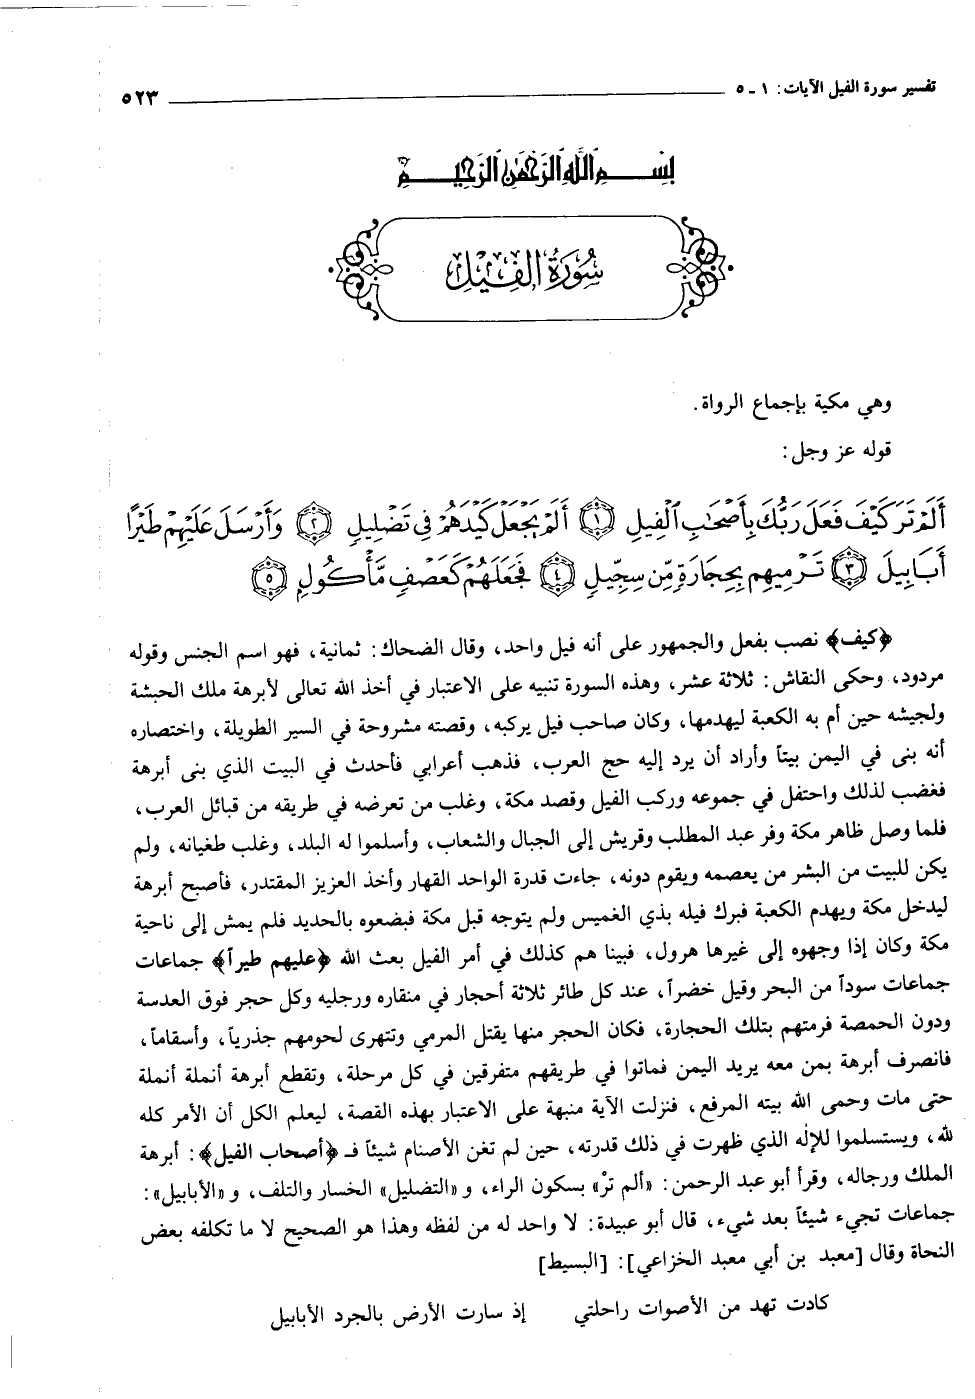 تفسير سورة الفيل الآيات: ١ ـ ٥ ٥٢٣
بِسْمِ اللَّهِ الرَّحْمَنِ الرَّحِيمِ
سُورَةُ الفِيْلِ
وهي مكية بإجماع الرواة.
قوله عز وجل:
أَلَمْ تَرَ كَيْفَ فَعَلَ رَبُّكَ بِأَصْحَٰبِ ٱلْفِيلِ ﴿١﴾ أَلَمْ يَجْعَلْ كَيْدَهُمْ فِى تَضْلِيلٍ ﴿٢﴾ وَأَرْسَلَ عَلَيْهِمْ طَيْرًا
أَبَابِيلَ ﴿٣﴾ تَرْمِيهِم بِحِجَارَةٍ مِّن سِجِّيلٍ ﴿٤﴾ فَجَعَلَهُمْ كَعَصْفٍ مَّأْكُولٍ ﴿٥﴾
﴿كيف﴾ نصب بفعل والجمهور على أنه فيل واحد، وقال الضحاك: ثمانية، فهو اسم الجنس وقوله
مردود، وحكى النقاش: ثلاثة عشر، وهذه السورة تنبيه على الاعتبار في أخذ الله تعالى لأبرهة ملك الحبشة
ولجيشه حين أم به الكعبة ليهدمها، وكان صاحب فيل يركبه، وقصته مشروحة في السير الطويلة، واختصاره
أنه بنى في اليمن بيتاً وأراد أن يرد إليه حج العرب، فذهب أعرابي فأحدث في البيت الذي بنى أبرهة
فغضب لذلك واحتفل في جموعه وركب الفيل وقصد مكة، وغلب من تعرضه في طريقه من قبائل العرب،
فلما وصل ظاهر مكة وفر عبد المطلب وقريش إلى الجبال والشعاب، وأسلموا له البلد، وغلب طغيانه، ولم
يكن للبيت من البشر من يعصمه ويقوم دونه، جاءت قدرة الواحد القهار وأخذ العزيز المقتدر، فأصبح أبرهة
ليدخل مكة ويهدم الكعبة فبرك فيله بذي الغميس ولم يتوجه قبل مكة فبضعوه بالحديد فلم يمش إلى ناحية
مكة وكان إذا وجهوه إلى غيرها هرول، فبينا هم كذلك في أمر الفيل بعث الله ﴿عليهم طيراً﴾ جماعات
جماعات سوداً من البحر وقيل خضراً، عند كل طائر ثلاثة أحجار في منقاره ورجليه وكل حجر فوق العدسة
ودون الحمصة فرمتهم بتلك الحجارة، فكان الحجر منها يقتل المرمي وتتهرى لحومهم جذرياً، وأسقاماً،
فانصرف أبرهة بمن معه يريد اليمن فماتوا في طريقهم متفرقين في كل مرحلة، وتقطع أبرهة أنملة أنملة
حتى مات وحمى الله بيته المرفع، فنزلت الآية منبهة على الاعتبار بهذه القصة، ليعلم الكل أن الأمر كله
لله، ويستسلموا للإله الذي ظهرت في ذلك قدرته، حين لم تغن الأصنام شيئاً فـ ﴿أصحاب الفيل﴾: أبرهة
الملك ورجاله، وقرأ أبو عبد الرحمن: «ألم ترْ» بسكون الراء، و «التضليل» الخسار والتلف، و «الأبابيل»:
جماعات تجيء شيئاً بعد شيء، قال أبو عبيدة: لا واحد له من لفظه وهذا هو الصحيح لا ما تكلفه بعض
النحاة وقال [معبد بن أبي معبد الخزاعي]: [البسيط]
كادت تهد من الأصوات راحلتي إذ سارت الأرض بالجرد الأبابيل